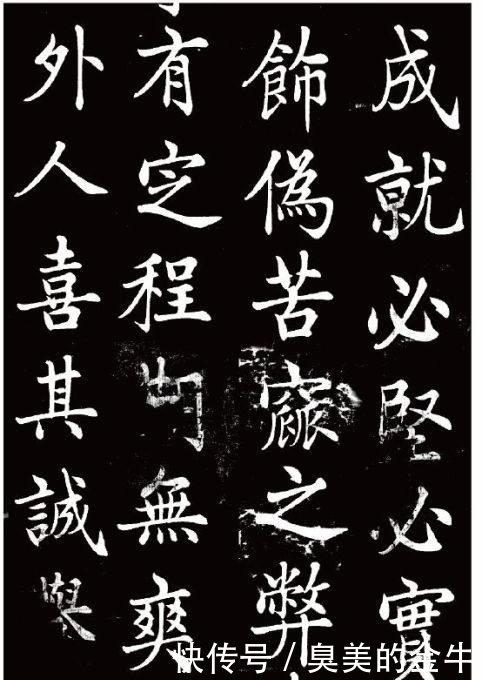 成就必堅必實
飾偽苦窳之弊
有㝎程無爽
外人喜其誠
快传号 / 臭美的金牛